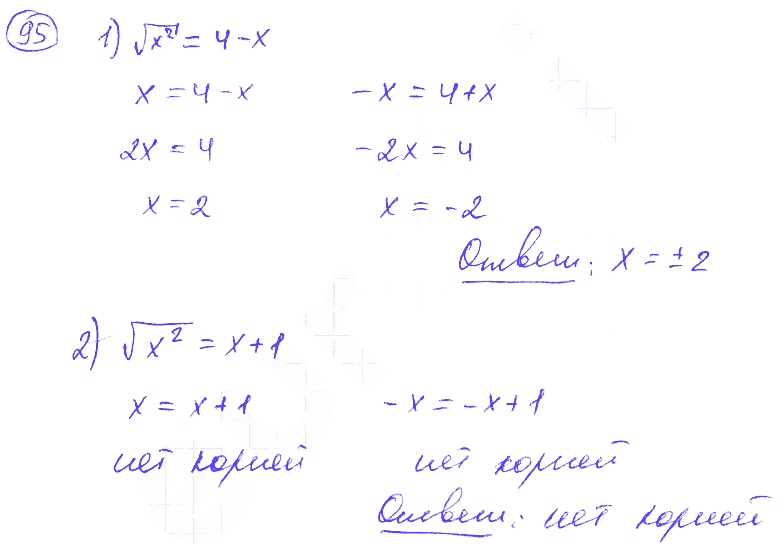 95
1) √x² = 4 - x
x = 4 - x    -x = 4 + x
2x = 4    -2x = 4
x = 2    x = -2
Ответ: x = ±2
2) √x² = x + 1
x = x + 1    -x = -x + 1
нет корней    нет корней
Ответ: нет корней